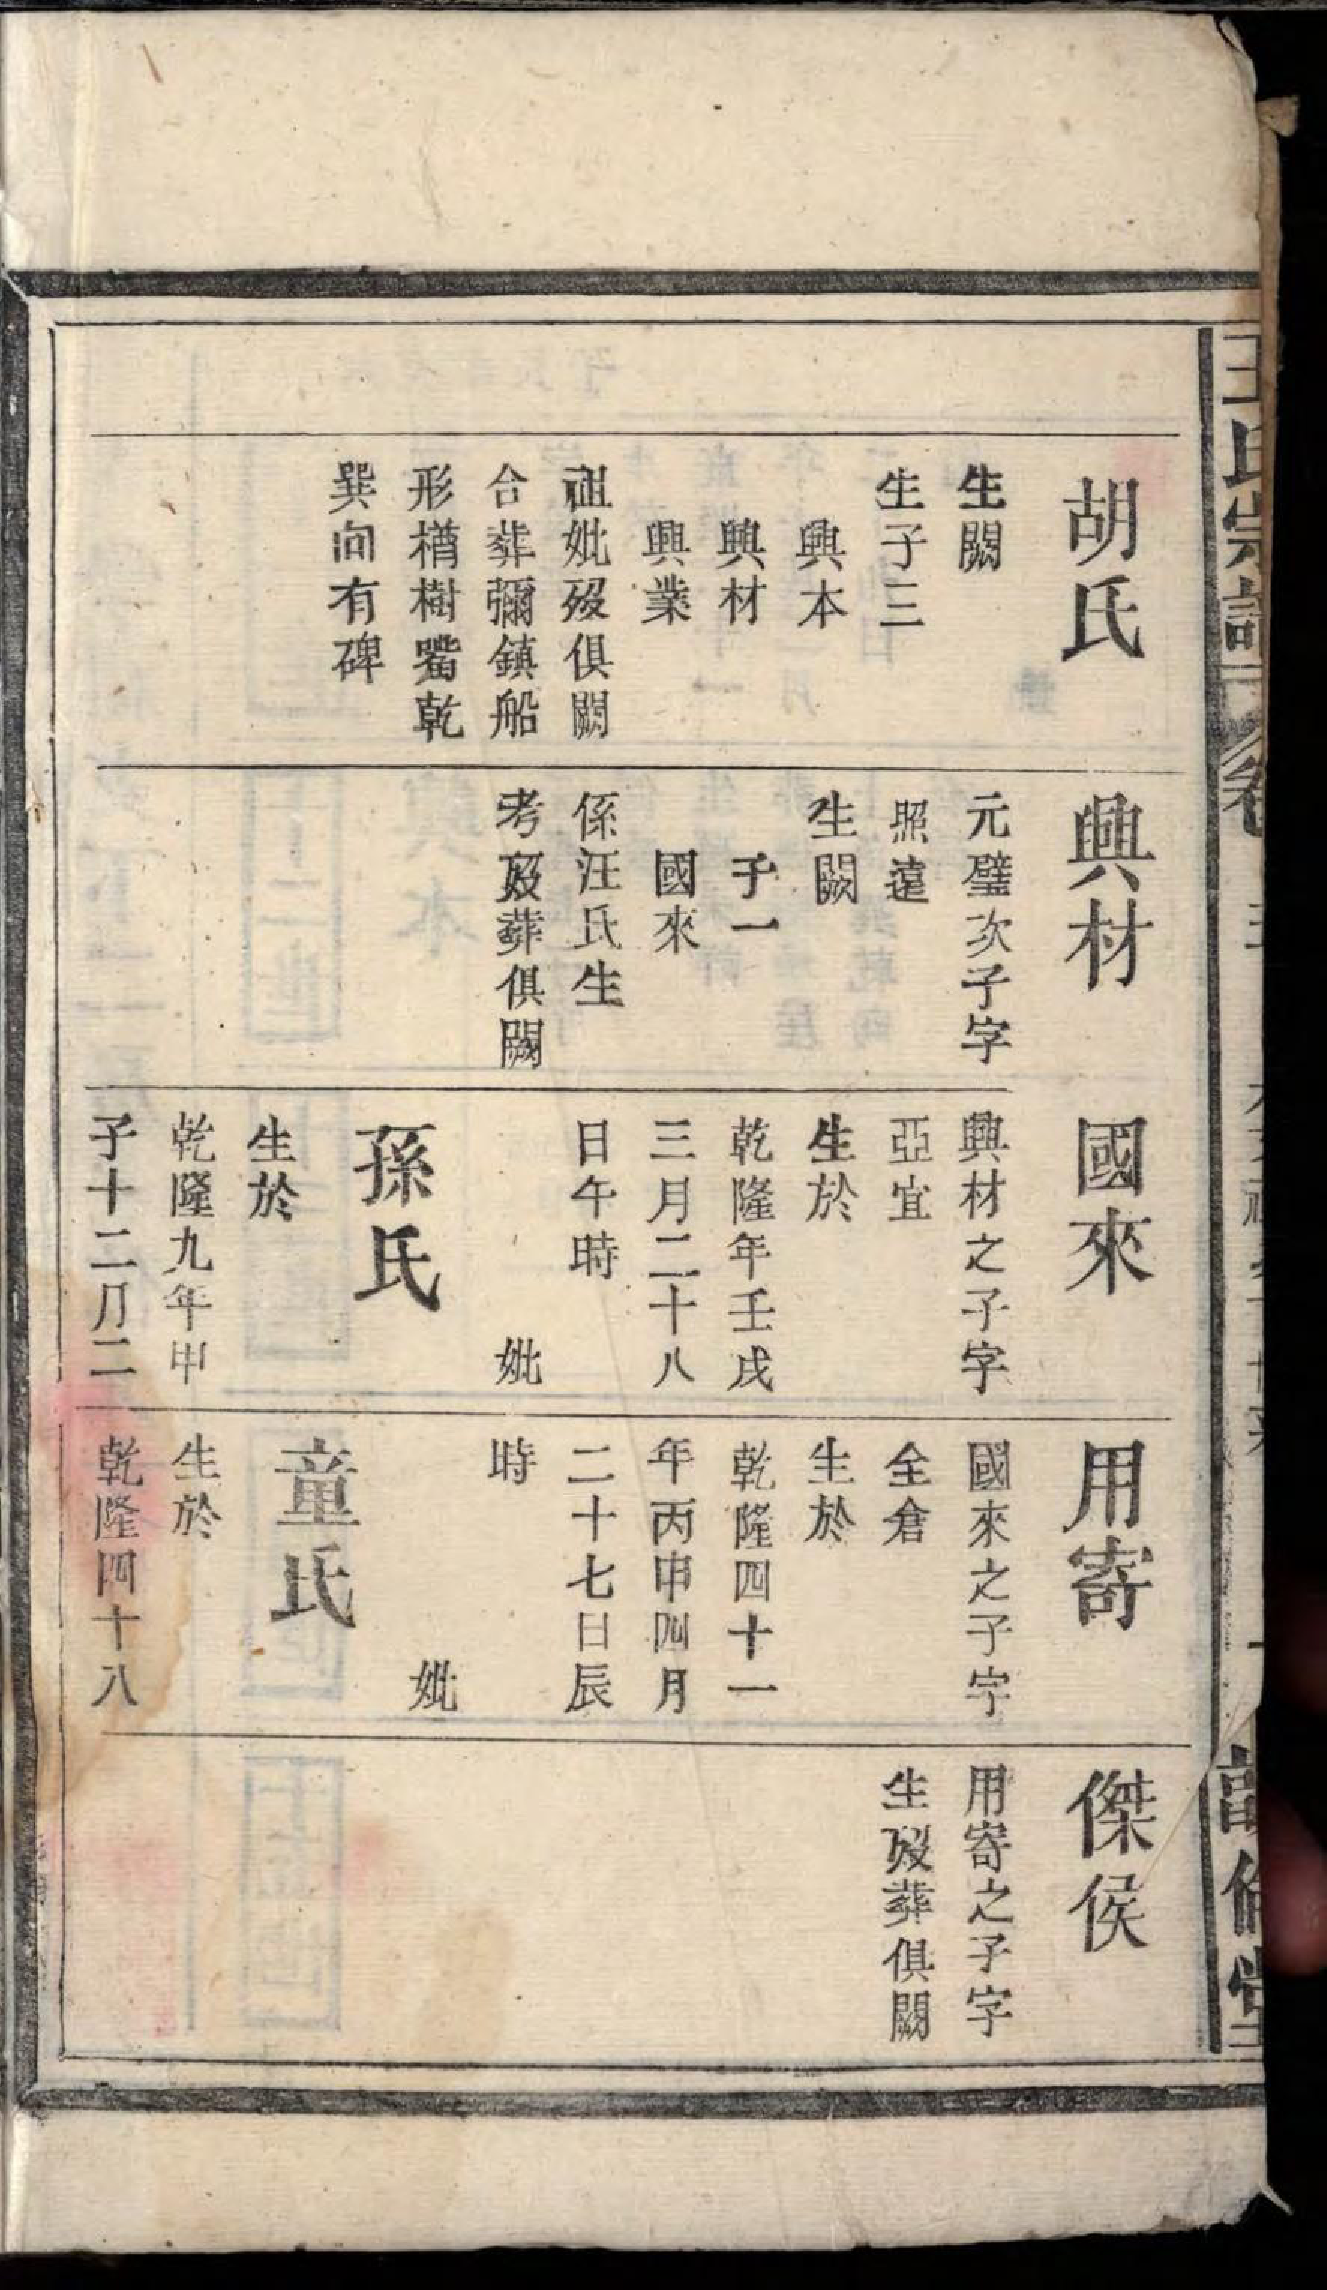 王氏宗譜
胡氏
生闕
生子三
興本
興材
興業
祖妣歿俱闕
合葬彌鎮船
形楢樹嘴乾
巽向有碑
興材
元璧次子字
照遠
生闕
子一
國來
係汪氏生
考歿葬俱闕
國來
興材之子字
亞宜
生於
乾隆年壬戌
三月二十八
日午時
妣
孫氏
生於
乾隆九年甲
子十二月二
用寄
國來之子字
全倉
生於
乾隆四十一
年丙申四月
二十七日辰
時
妣
童氏
生於
乾隆四十八
傑侯
用寄之子字
生歿葬俱闕